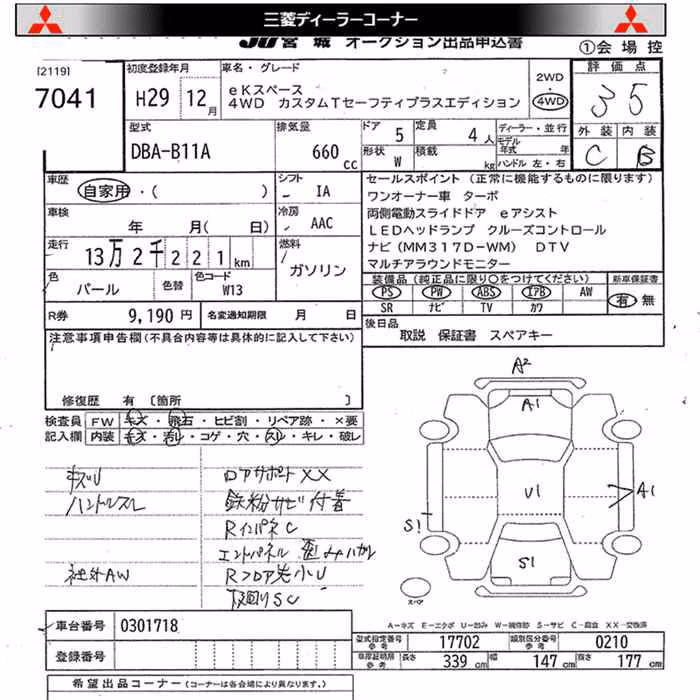 三菱ディーラーコーナー
JU宮城 オークション出品申込書
①会場控
[2119]
7041
初度登録年月
H29 12月
車名・グレード
eKスペース
4WD カスタムTセーフティプラスエディション
2WD
4WD
評価点
3.5
外装 内装
C B
型式
DBA-B11A
排気量
660 cc
ドア 5
定員 4人
形状 W
積載 kg
ディーラー・並行
モデル年式 年
ハンドル 左・右
車歴
自家用・( )
シフト
IA
車検
年 月( 日)
冷房
AAC
走行
13万2千221km
燃料
ガソリン
色
パール
色替
色コード
W13
R券 9,190円
名変通知期限 月 日
セールスポイント (正常に機能するものに限ります)
ワンオーナー車 ターボ
両側電動スライドドア eアシスト
LEDヘッドランプ クルーズコントロール
ナビ(MM317D-WM) DTV
マルチアラウンドモニター
装備品(純正品に限り〇をつけてください)
新車保証書
PS PW ABS エアB AW
SR ナビ TV カワ
有 無
後日品
取説 保証書 スペアキー
注意事項申告欄(不具合内容等は具体的に記入して下さい)
修復歴 有 〔箇所
検査員記入欄
FW キズ・飛石・ヒビ割・リペア跡・×要
内装 キズ・汚レ・コゲ・穴・スレ・キレ・破レ
キズU
ハンドルスレ
社外AW
ロアサポートXX
鉄粉サビ付着
RインパネC
エンドパネル 歪み ハガレ
Rフロア先小U
下回りSC
A2
A1
U1
A1
S1
S1
スペア
A-キズ E-エクボ U-凹み W-補修跡 S-サビ C-腐食 XX-交換済
車台番号 0301718
登録番号
型式指定番号 参考 17702
類別区分番号 参考 0210
車庫証明用 参考 長さ 339cm 幅 147cm 高さ 177cm
希望出品コーナー (コーナーは各会場により異なります。)